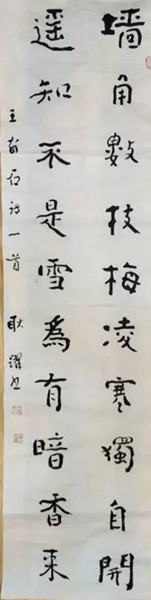 墙角數枝梅凌寒獨自開
遥知不是雪為有暗香来
王安石詩一首 耿躍